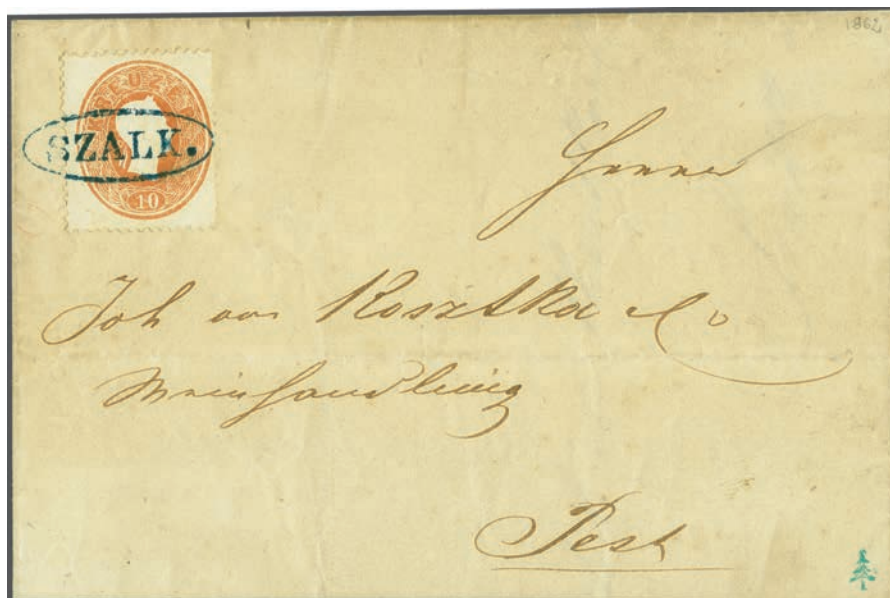 1862
KREUZER
SZALK.
10
Herrn
Joh von Kosztka & Co
Weinhandlung
Pest